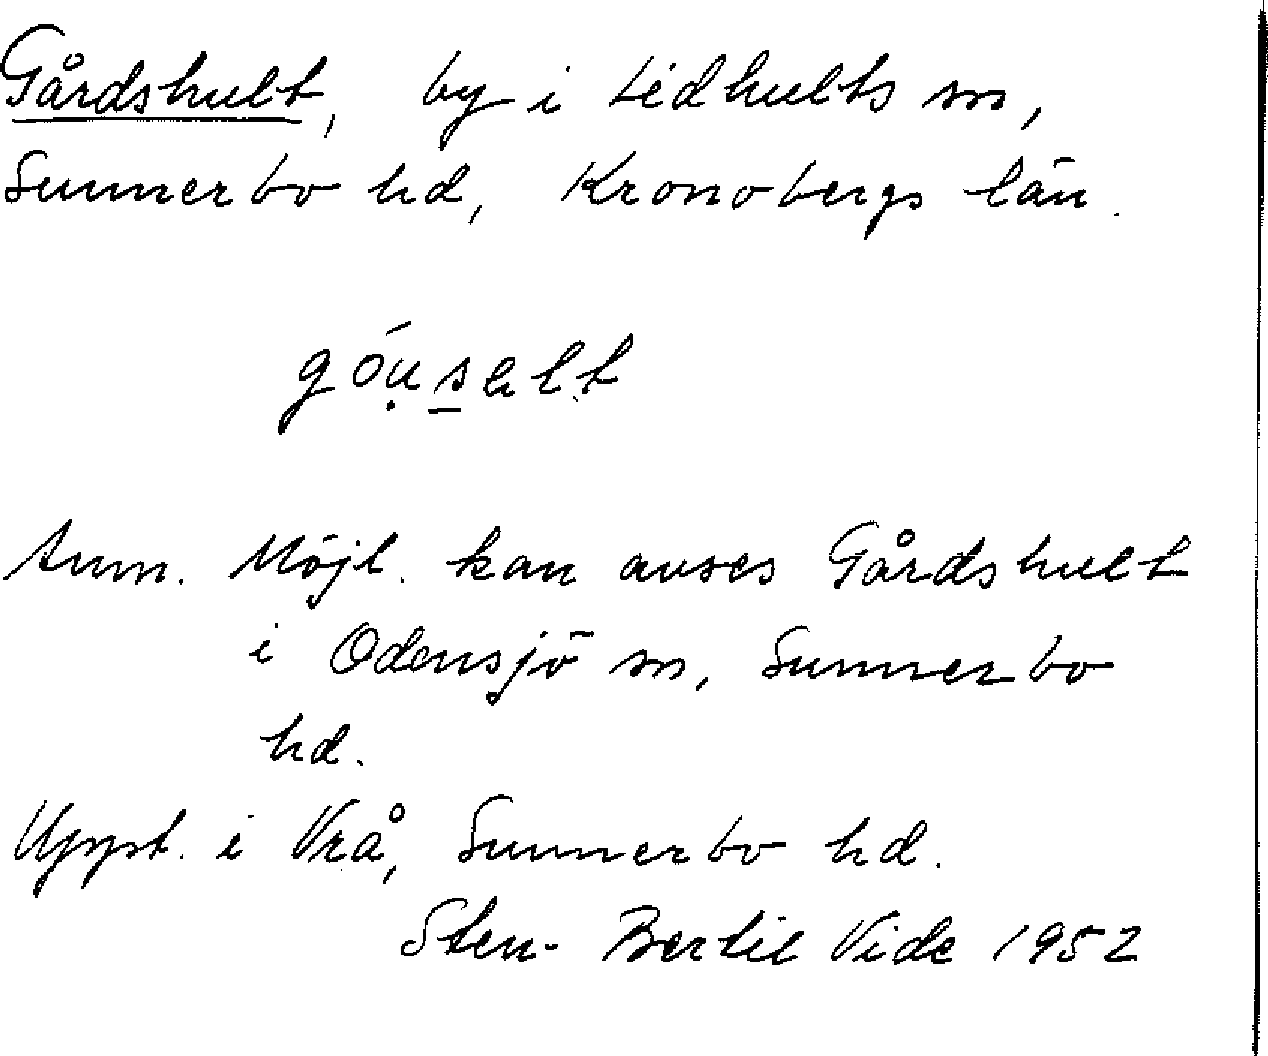 Gårdshult, by i Lidhults sn,
Sunnerbo hd, Kronobergs län.
Anm. Möjl. kan avses Gårdshult
i Odensjö sn, Sunnerbo
hd.
Uppt. i Vrå, Sunnerbo hd.
Sten-Bertil Vide 1952